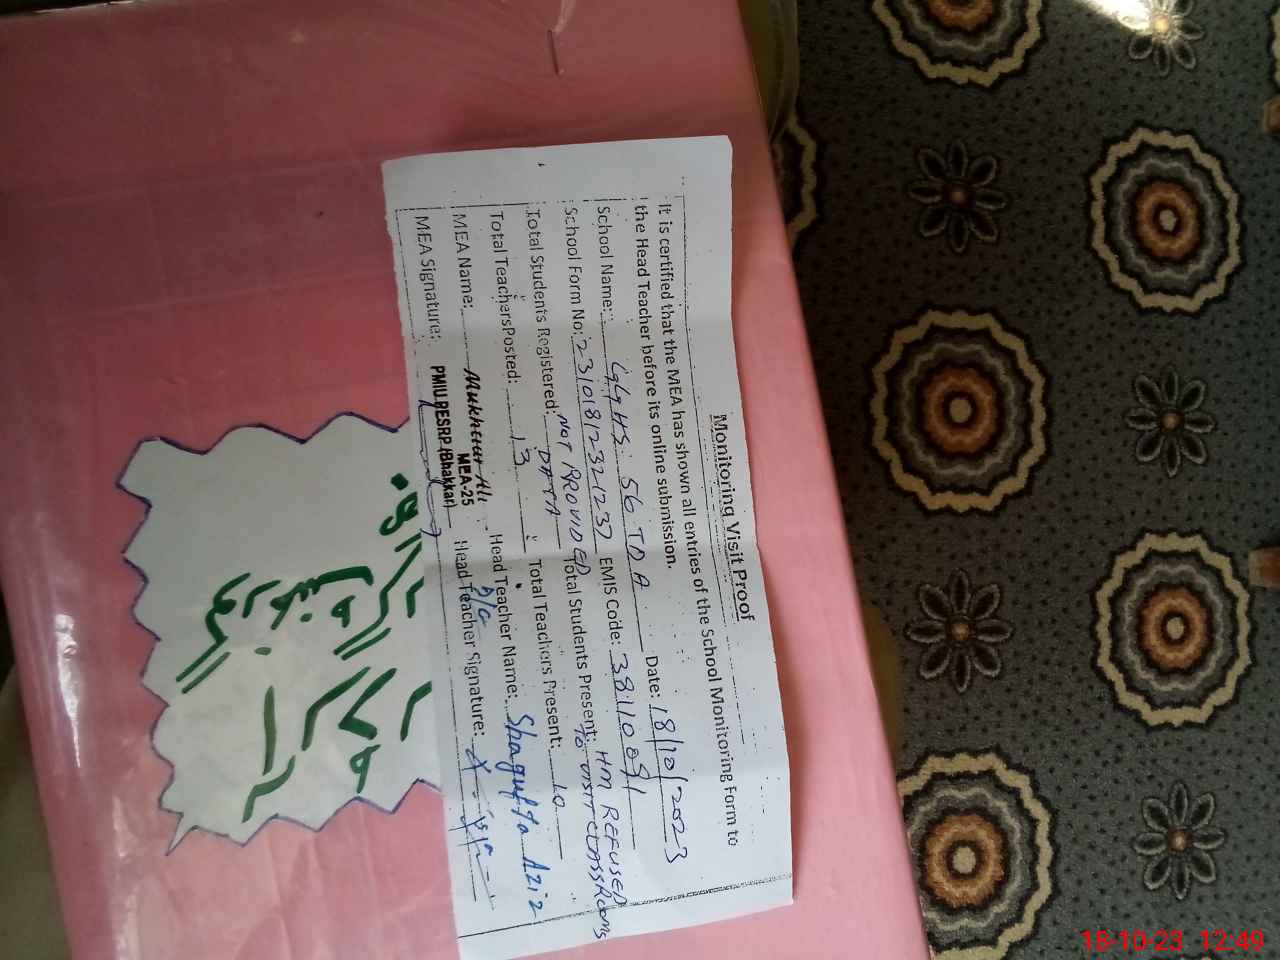 Monitoring Visit Proof
It is certified that the MEA has shown all entries of the School Monitoring Form to
the Head Teacher before its online submission.
School Name: GGHS 56 TDA Date: 18/10/2023
School Form No: 23101812321237 EMIS Code: 38110091
Total Students Registered: NOT PROVIDED DATA Total Students Present: HM REFUSED TO VISIT CLASSROOMS
Total Teachers Posted: 13 Total Teachers Present: 10
MEA Name: Mukhtar Ali Head Teacher Name: Shagufta Aziz
MEA-25
MEA Signature: PMIU.PESRP.(Bhakkar) Head Teacher Signature:
18-10-23 12:49